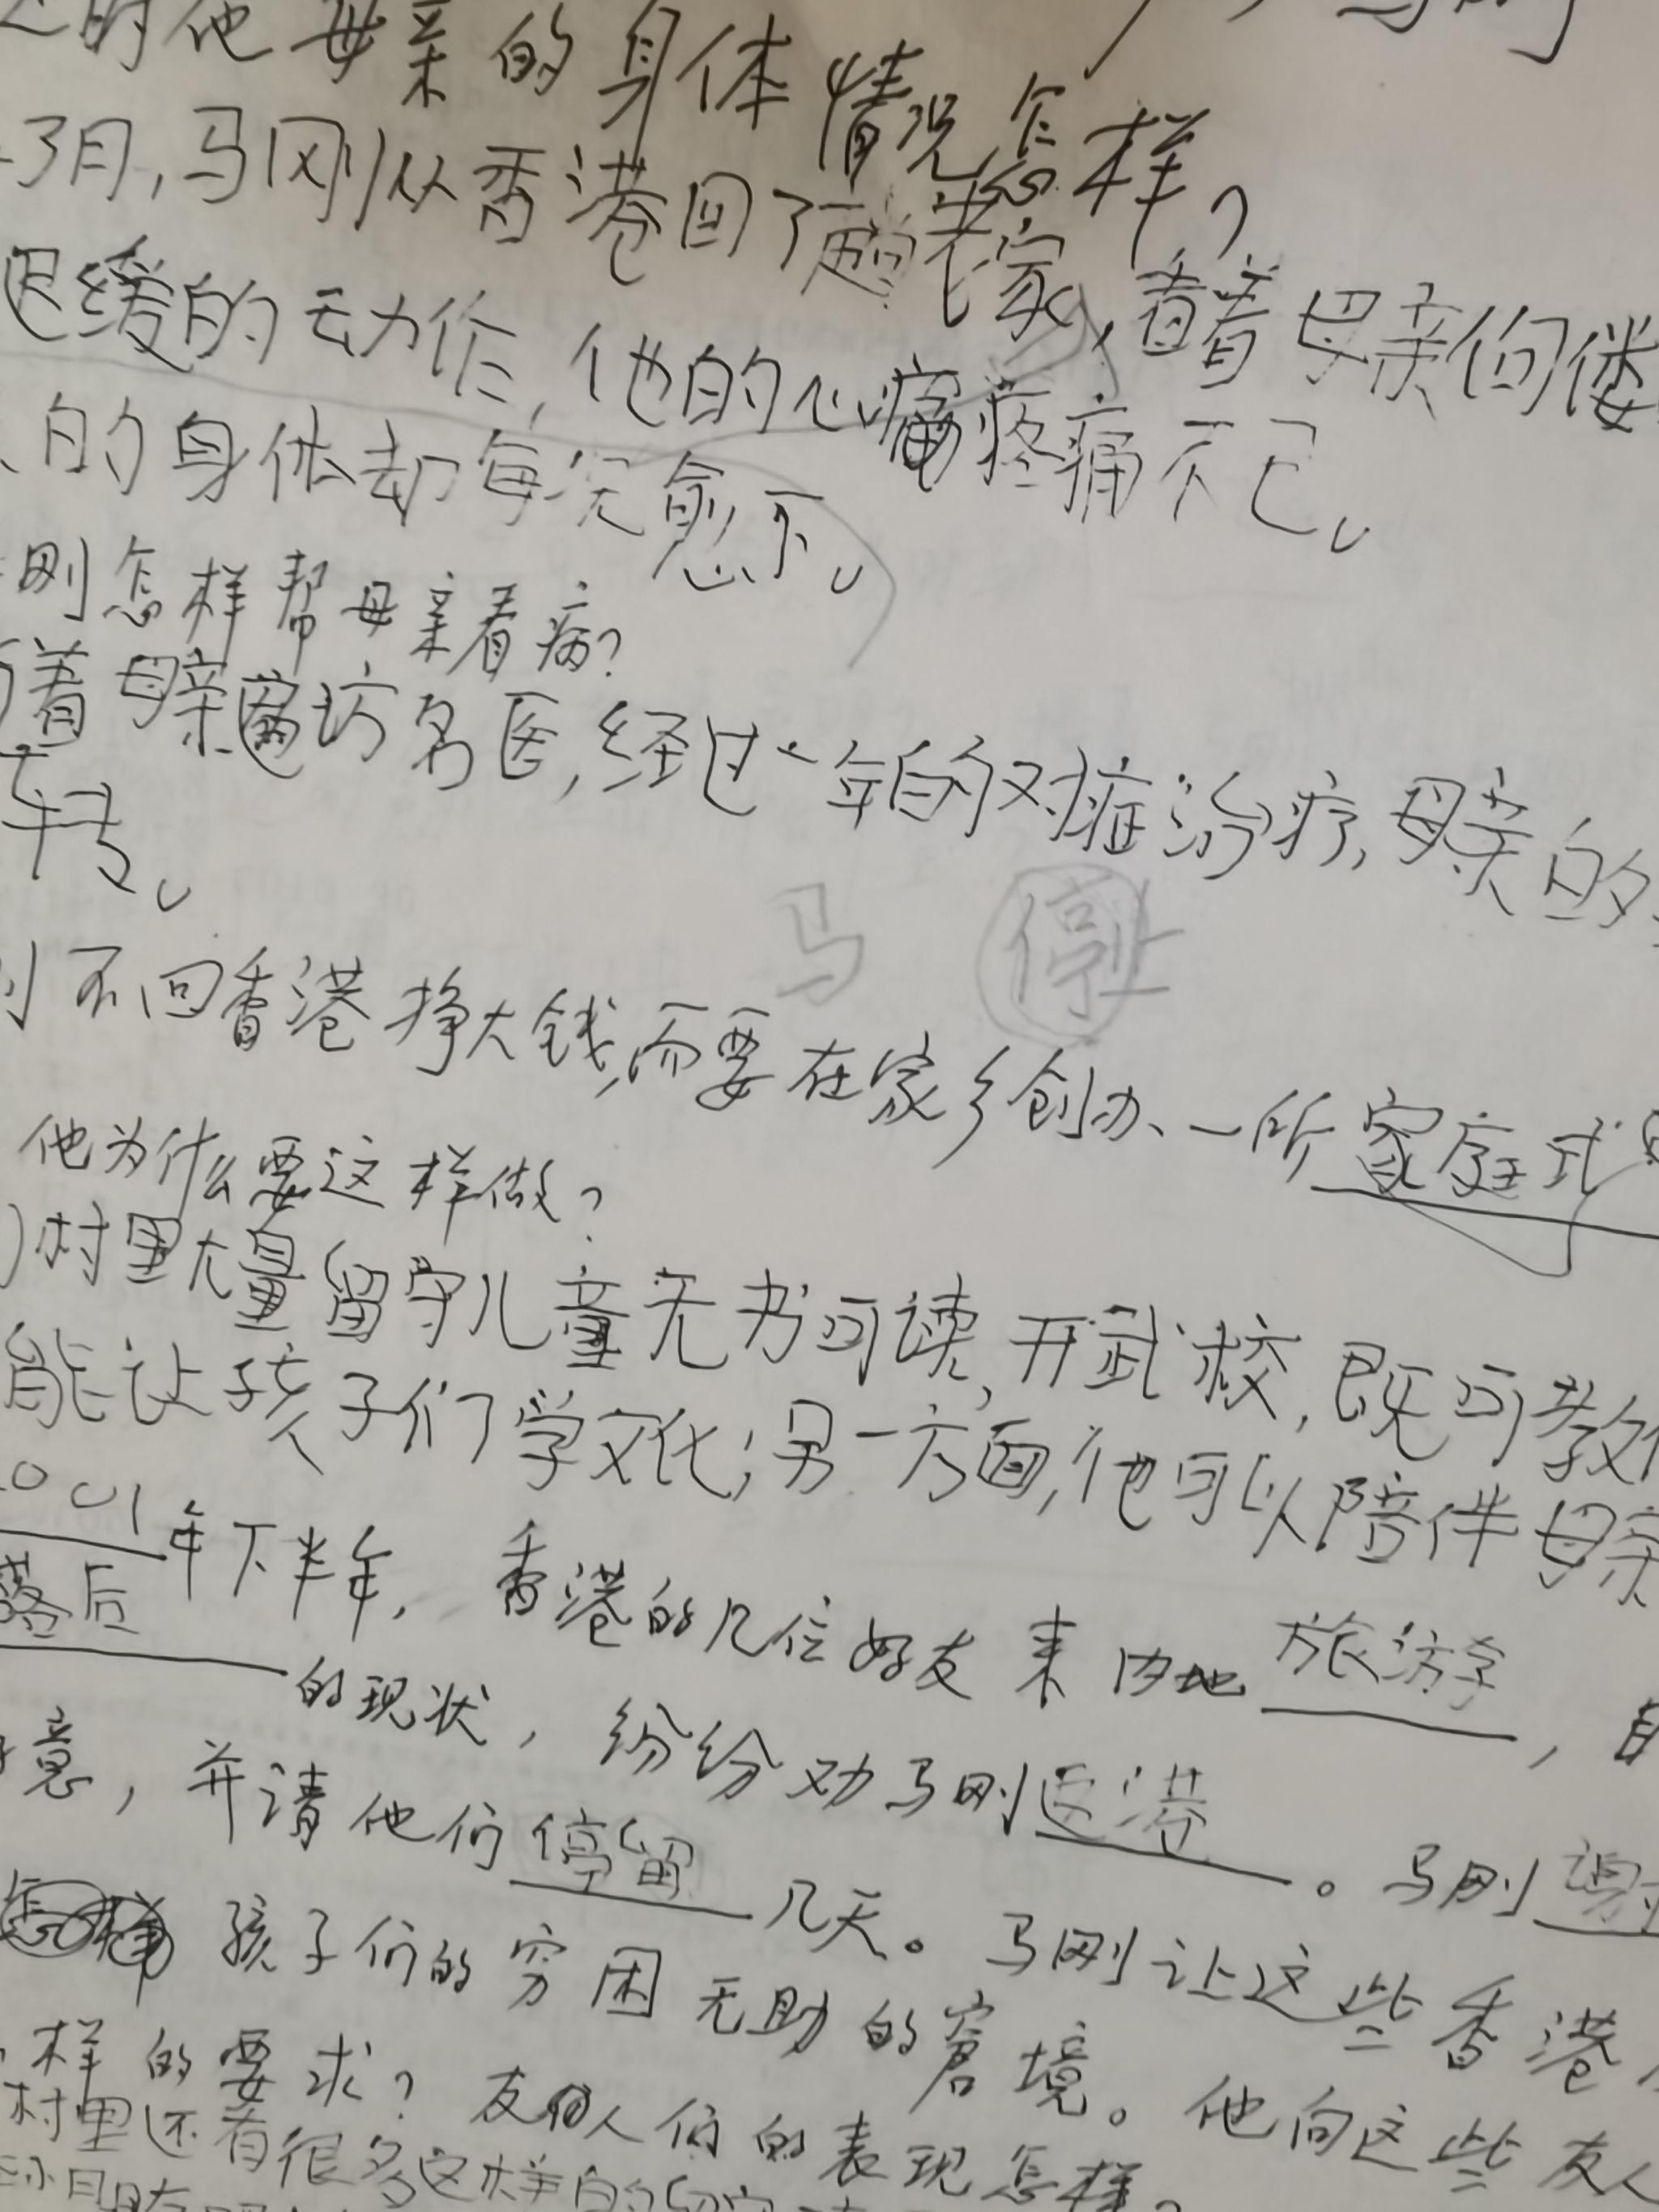 时他母亲的身体情况怎样?
3月,马刚从香港回了趟老家,看着母亲佝偻
迟缓的动作,他的心疼痛不已。
的身体却每况愈下。
刚怎样帮母亲看病?
着母亲遍访名医,经过一年的对症治疗,母亲的
转。
马 停止
不回香港挣大钱,而要在家乡创办一所家庭式
他为什么要这样做?
村里大量留守儿童无书可读,开武校,既可教
能让孩子们学文化;另一方面,他可以陪伴母亲
001年下半年,香港的几位好友来内地旅游
落后的现状,纷纷劝马刚返港。马刚谢
意,并请他们停留几天。马刚让这些香港
孩子们的穷困无助的窘境。他向这些友人
样的要求?友人们的表现怎样?
村里还有很多这样的留守